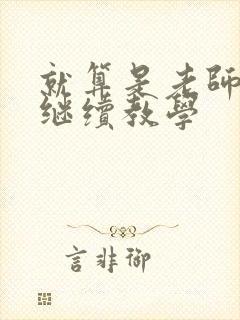 就算是老師
继續教學
言非御